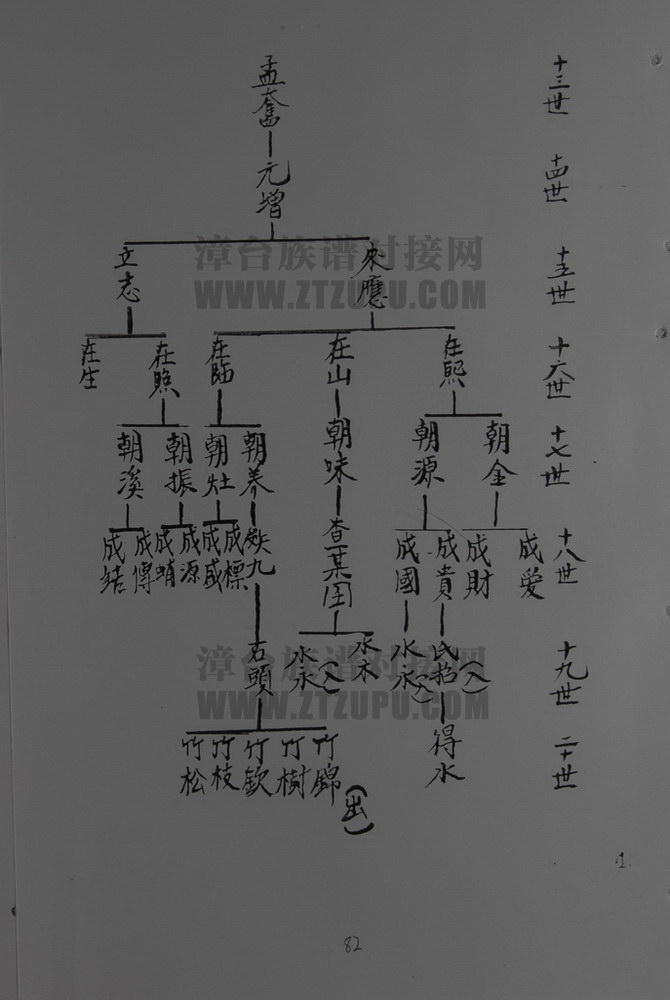 十三世
十四世
十五世
十六世
十七世
十八世
十九世
二十世
孟奮
元增
來應
立志
在熙
在山
在臨
在照
在生
朝金
朝源
朝味
朝养
朝灶
朝振
朝溪
成爱
成財
成貴
成國
查某囝
九
成標
成咸
成源
成蛸
成傳
成結
氏招(入)
水永(入)
水木
水永(入)
石頭
得水
竹錦(出)
竹樹
竹欽
竹枝
竹松
1
82
漳台族谱对接网
WWW.ZTZUPU.COM
漳台族谱对接网
WWW.ZTZUPU.COM